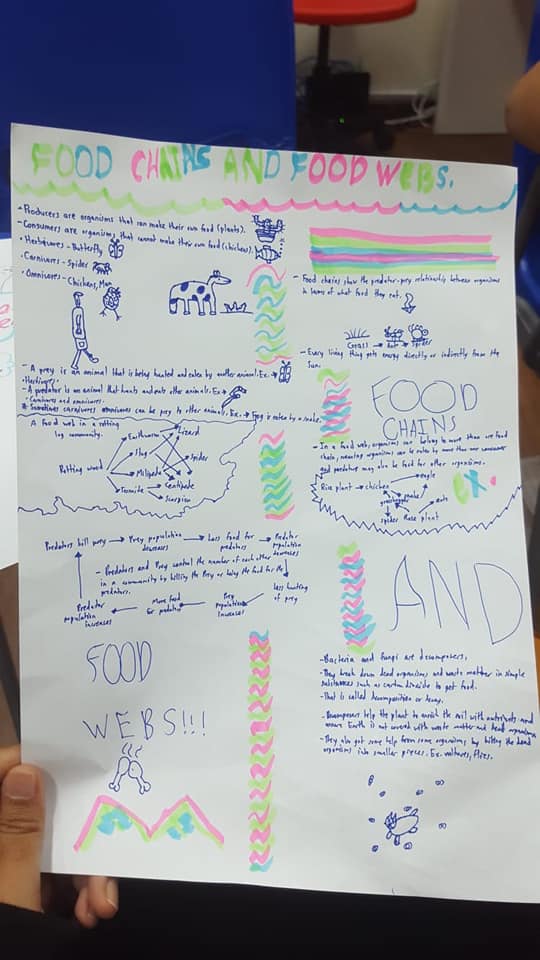 FOOD CHAINS AND FOOD WEBS.
- Producers are organisms that can make their own food (plants).
- Consumers are organisms that cannot make their own food (chickens).
· Herbivores - Butterfly
· Carnivores - Spider
· Omnivores - Chickens, Man
- A prey is an animal that is being hunted and eaten by another animal. Ex. →
· Herbivores.
- A predator is an animal that hunts and eats other animals. Ex →
· Carnivores and omnivores.
* Sometimes carnivores omnivores can be prey to other animals. Ex. → Frog is eaten by a snake.
A food web in a rotting
log community.
Rotting wood
Earthworm
Slug
Millipede
Termite
Lizard
Spider
Centipede
Scorpion
Predators kill prey → Prey population
decreases
→ Less food for
predators
→ Predator
population
decreases
- Predators and Prey control the number of each other
in a community by killing the Prey or being the food for the
predators.
Less hunting
of prey
Prey
population
increases
More food
for predator
Predator
population
increases
FOOD
WEBS!!!
- Food chains show the predator-prey relationship between organisms
in terms of what food they eat.
Grass → Ant → Spider
- Every living thing gets energy directly or indirectly from the
Sun.
FOOD
CHAINS
- In a food web, organisms can belong to more than one food
chain, meaning organisms can be eaten by more than one consumer
and predators may also be food for other organisms.
eagle
Rice plant → chicken
snake
grasshopper
owls
spider
Rose plant
ex.
AND
- Bacteria and fungi are decomposers.
- They break down dead organisms and waste matter in simple
substances such as carbon dioxide to get food.
- That is called decomposition or decay.
- Decomposers help the plant to enrich the soil with nutrients and
ensure Earth is not covered with waste matter and dead organisms
- They also get some help from some organisms by biting the dead
organisms into smaller pieces. Ex. vultures, flies.